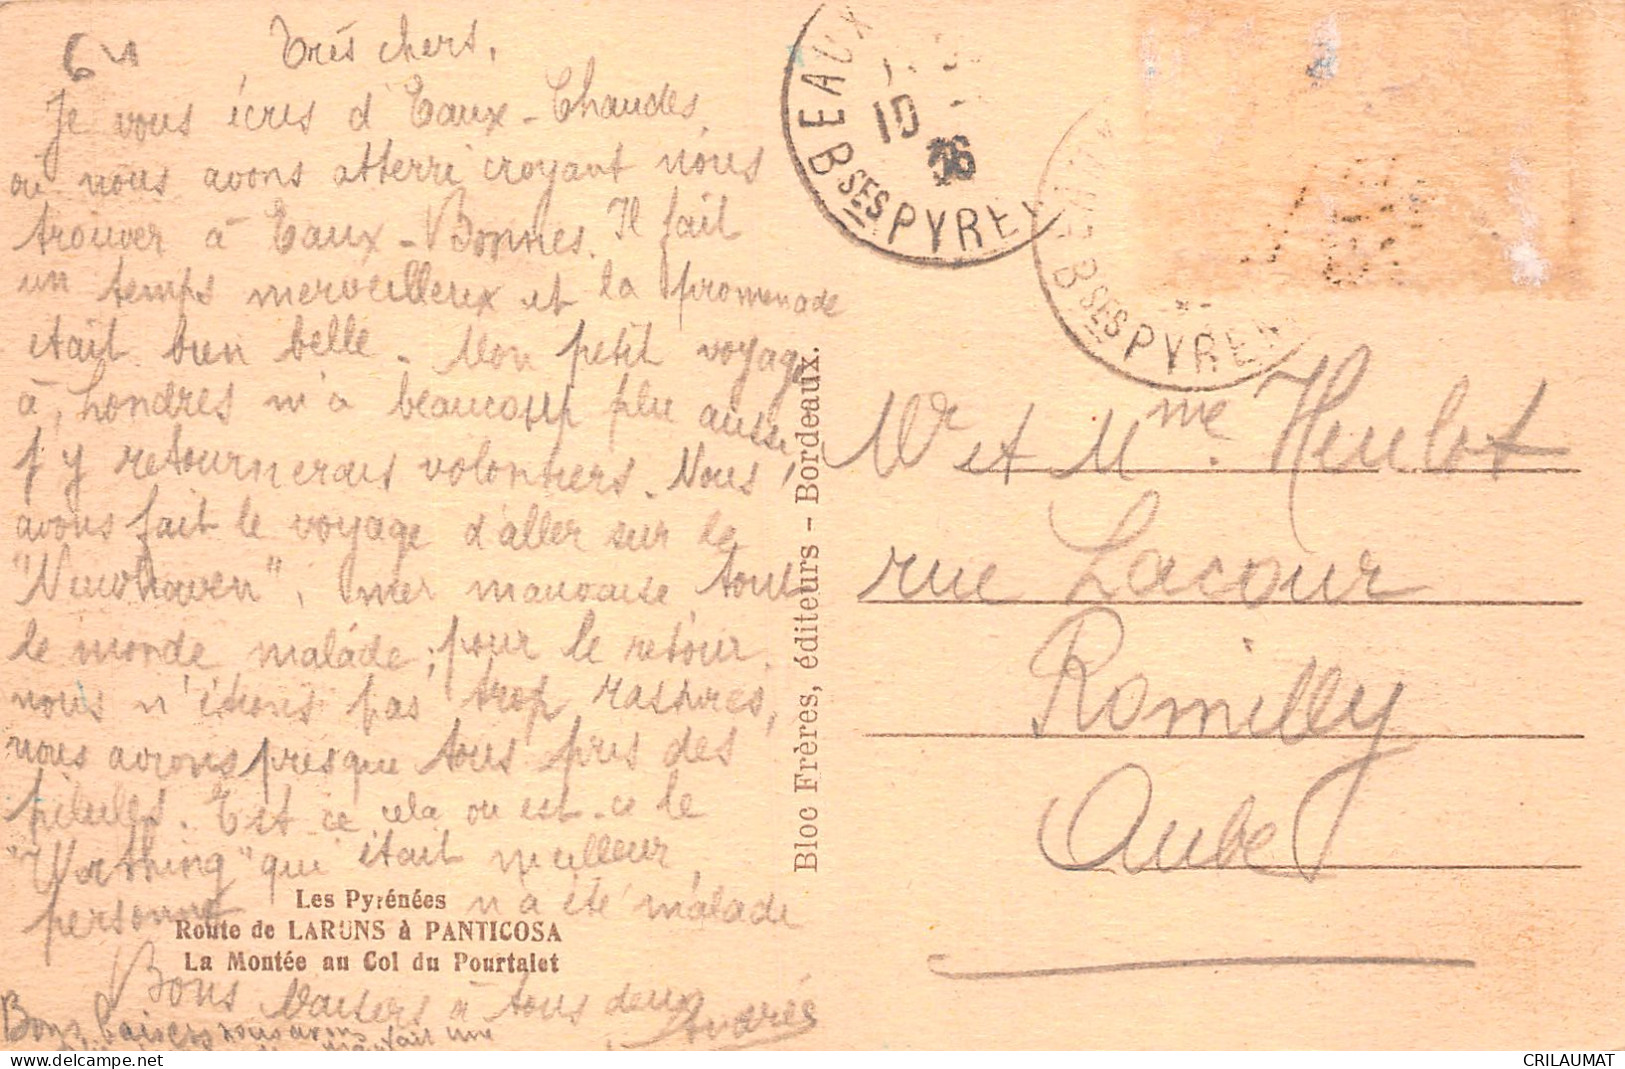 64
Très chers,
Je vous écris d'Eaux-Chaudes,
où nous avons atterri croyant nous
trouver à Eaux-Bonnes. Il fait
un temps merveilleux et la promenade
était bien belle. Mon petit voyage
à Londres m'a beaucoup plu aussi
j'y retournerais volontiers. Nous
avons fait le voyage d'aller sur le
"Newhaven", mer mauvaise tout
le monde malade; pour le retour
nous n'étions pas trop rassurés,
nous avons presque tous pris des
pilules. Est ce cela ou est-ce le
"Worthing" qui était meilleur,
personne n'a été malade
Bons baisers à tous deux
Andrée
Bons baisers nous avons
fait une
Les Pyrénées
Route de LARUNS à PANTICOSA
La Montée au Col du Pourtalet
Bloc Frères, éditeurs - Bordeaux.
EAUX
10
36
BSES PYRE
BSES PYREN
Mr et Mme Heulot
rue Lacour
Romilly
Aube
CRILAUMAT